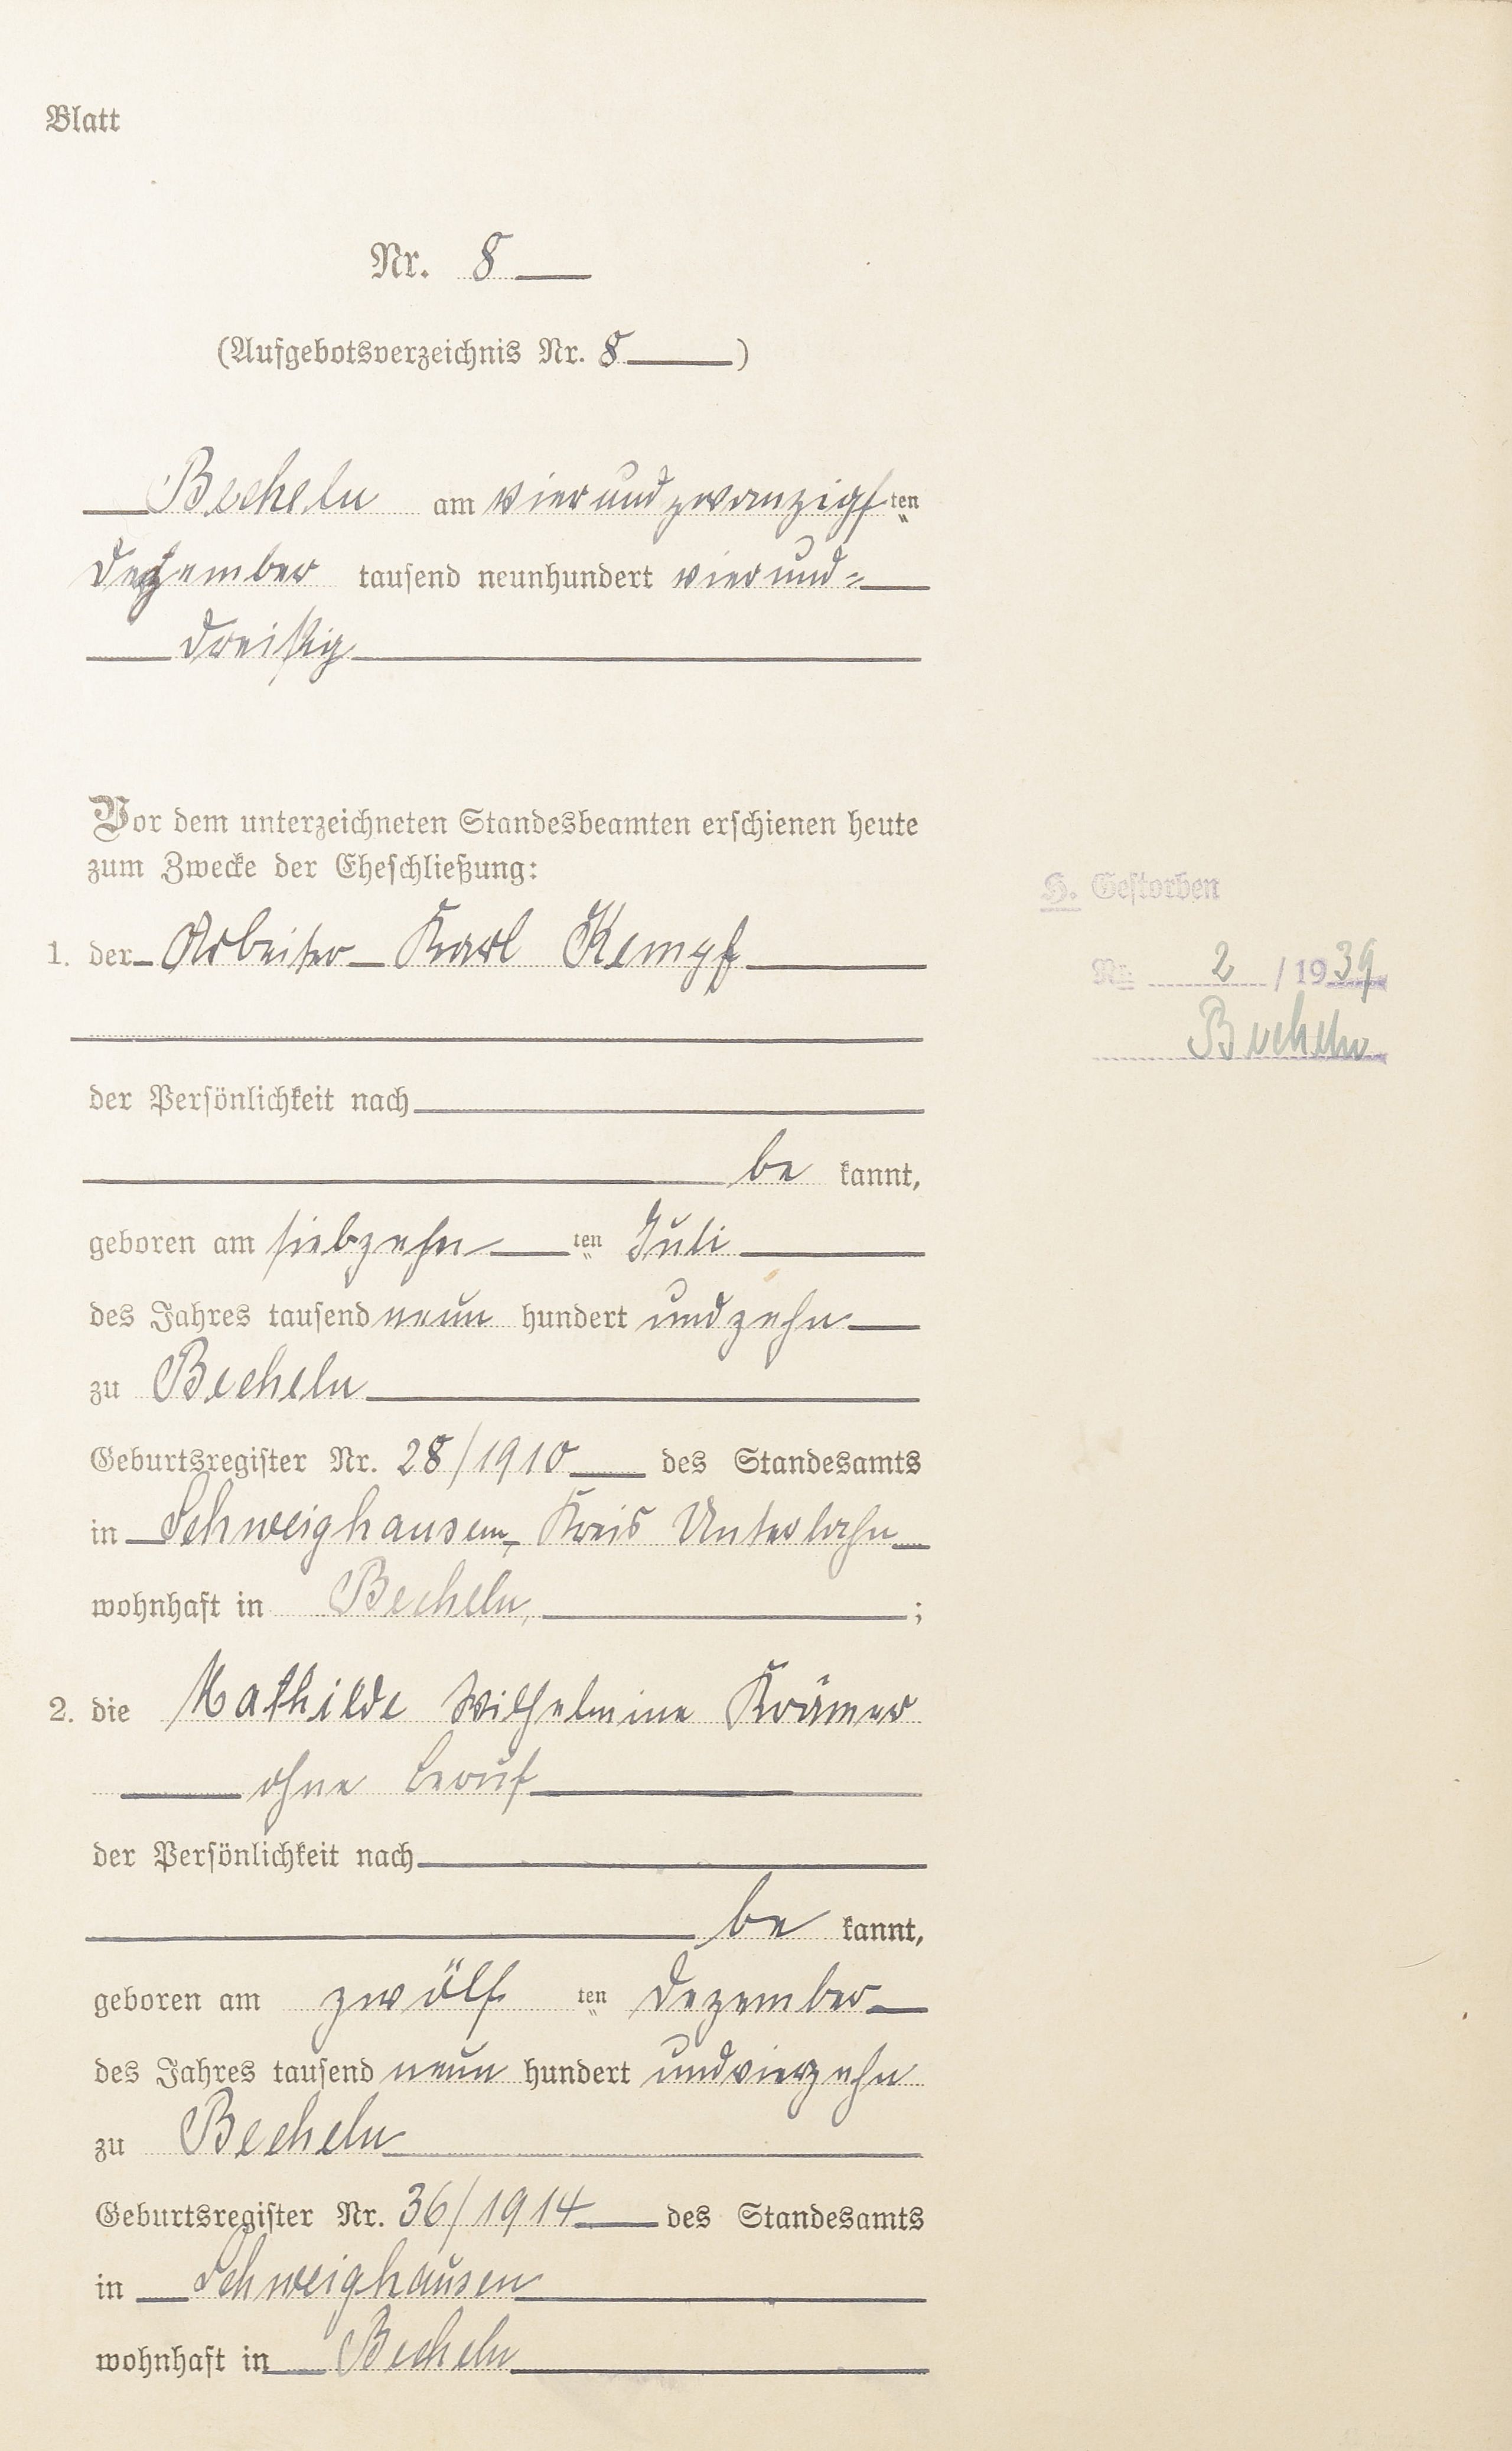 Blatt
Nr. 8
(Aufgebotsverzeichnis Nr. 8)
Becheln am vierundzwanzigsten
Dezember tausend neunhundert vierund=
dreißig
Vor dem unterzeichneten Standesbeamten erschienen heute
zum Zwecke der Eheschließung:
1. der Arbeiter Karl Kempf
der Persönlichkeit nach
be kannt,
geboren am siebzehn ten Juli
des Jahres tausend neun hundert undzehn
zu Becheln
Geburtsregister Nr. 28/1910 des Standesamts
in Schweighausen, Kreis Unterlahn
wohnhaft in Becheln, ;
2. die Mathilde Wilhelmine Krämer
ohne Beruf
der Persönlichkeit nach
be kannt,
geboren am zwölf ten Dezember
des Jahres tausend neun hundert undvierzehn
zu Becheln
Geburtsregister Nr. 36/1914 des Standesamts
in Schweighausen
wohnhaft in Becheln
H. Gestorben
Nr. 2 / 1939
Becheln